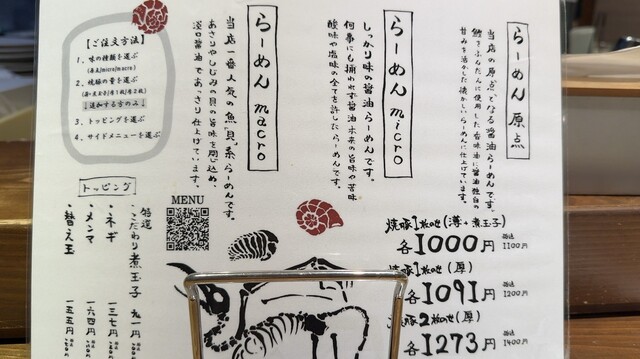 らーめん 原点
当店の原点となる醤油らーめんです。
鶏をふんだんに使用した香味油に醤油独自の
甘みを活かした懐かしいらーめんに仕上げています。
らーめん micro
しっかり味の醤油らーめんです。
何事にも捕われず醤油本来の旨味や苦味
酸味や塩味の全てを許したらーめんです。
らーめん macro
当店一番人気の魚貝系らーめんです。
あさりやしじみの貝の旨味を閉じ込め、
淡口醤油であっさり仕上げています。
【ご注文方法】
1、味の種類を選ぶ
(原点/micro/macro)
2、焼豚の量を選ぶ
↓追加する方のみ↓
3、トッピングを選ぶ
4、サイドメニューを選ぶ
トッピング
・こだわり煮玉子
・ネギ 一三七円
・メンマ 一六四円
・替え玉 一五五円
MENU
焼豚1枚のせ(薄+煮玉子)
各1000円 税込1100円
焼豚1枚のせ(厚)
各1091円 税込1200円
焼豚2枚のせ(厚)
各1273円 税込1400円